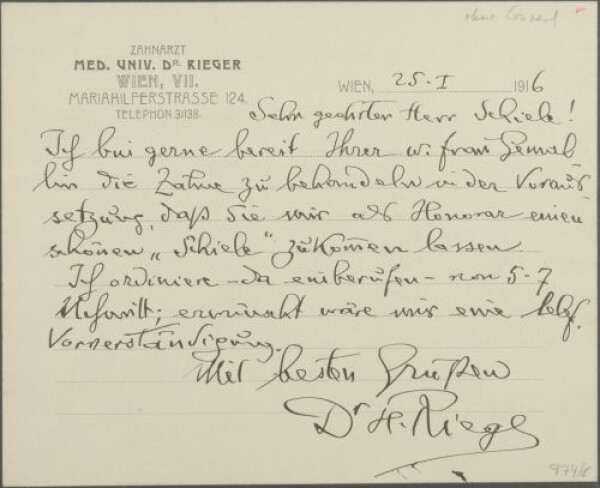 ohne Couvert
ZAHNARZT
MED. UNIV. DR. RIEGER
WIEN, VII.
MARIAHILFERSTRASSE 124.
TELEPHON 31138.
WIEN, 25·I 1916
Sehr geehrter Herr Schiele!
Ich bin gerne bereit Ihrer w. Frau Gemah
lin die Zähne zu behandeln in der Voraus
setzung, daß Sie mir als Honorar einen
schönen „Schiele" zukommen lassen.
Ich ordiniere – da einberufen – von 5-7
Uhr erwünscht wäre mir eine telef.
Vorverständigung.
Mit besten Grüßen
Dr H. Rieger
974/8